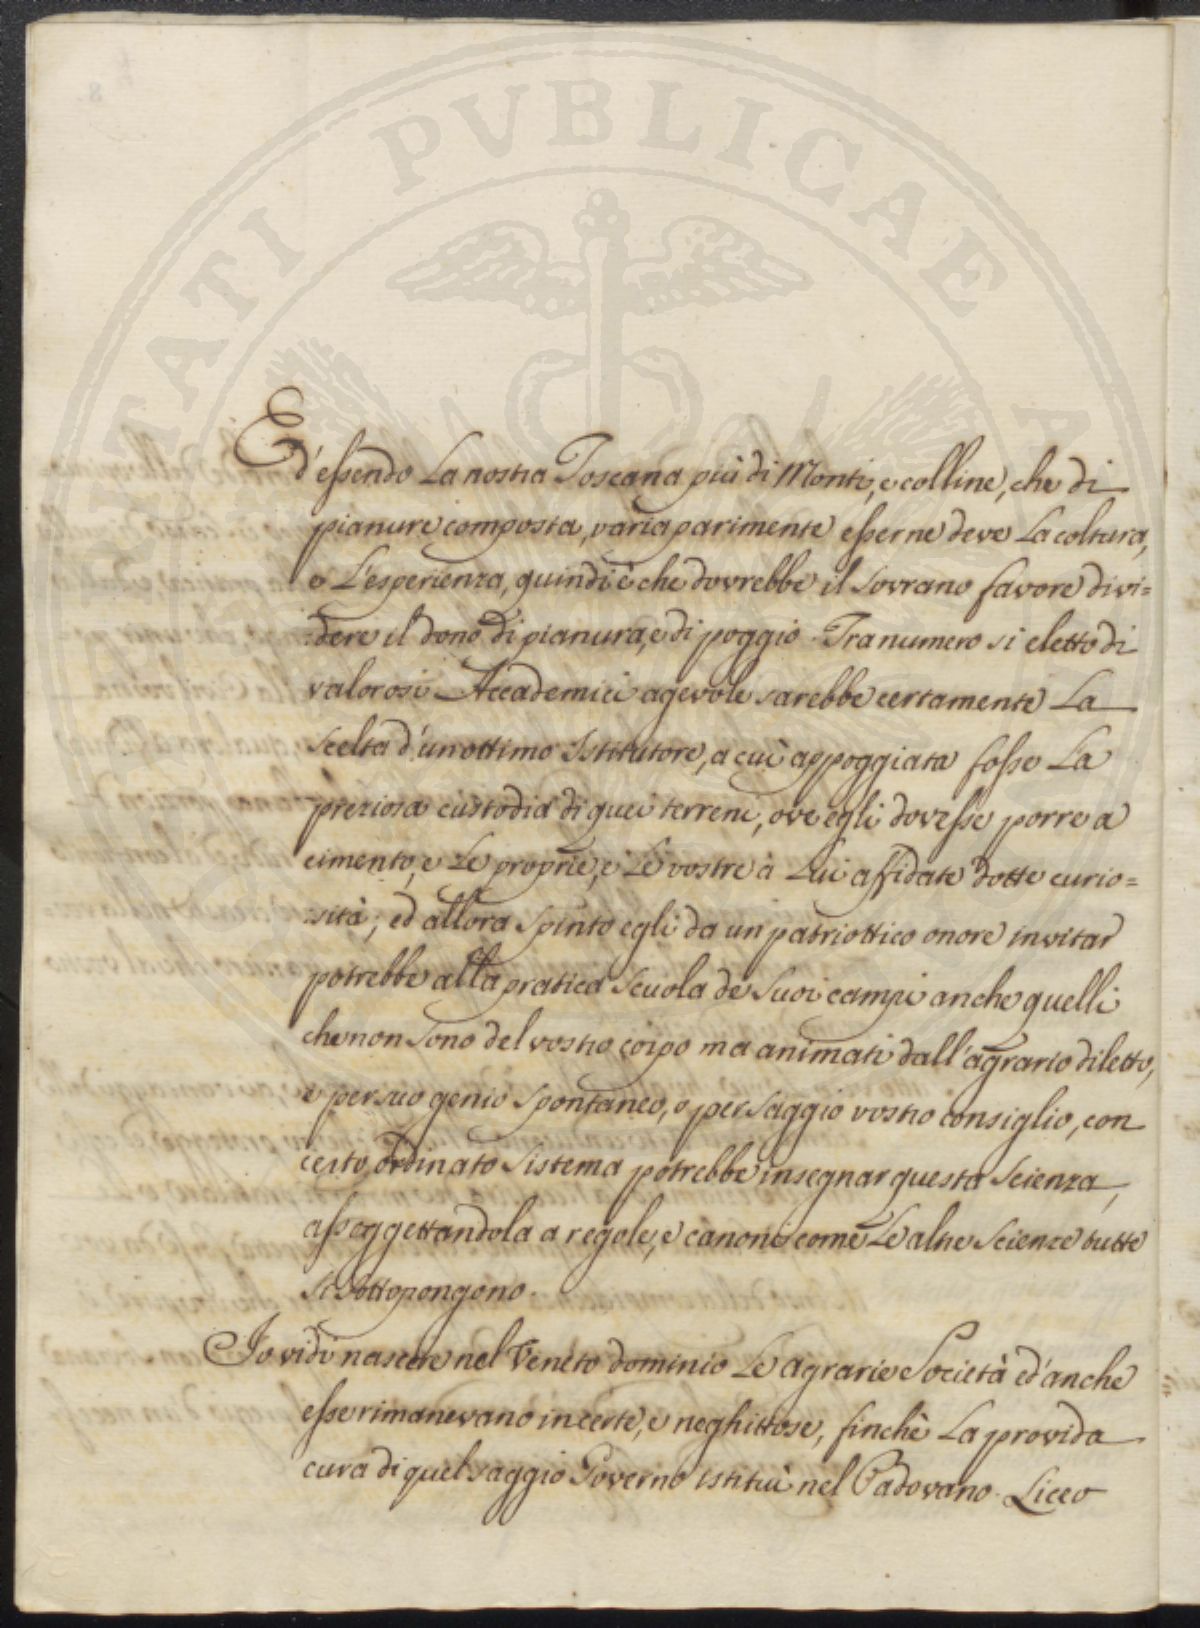 PVBLICAE
Ed'essendo La nostra Toscana più di Monti, e colline, che di
pianure composta, varia parimente esserne deve La coltura,
e L'esperienza, quindi è che dovrebbe il Sovrano favore divi=
dere il dono di pianura, e di poggio. Tra numero si eletto di
valorosi Accademici agevole sarebbe certamente La
scelta d'un ottimo Istitutore, a cui appoggiata fosse La
preziosa custodia di quei terreni, ove egli dovesse porre a
cimento, e Le proprie, e Le vostre à Lui affidate dotte curio=
sità; ed allora spinto egli da un patriottico onore invitar
potrebbe alla pratica scuola de suoi campi anche quelli
che non sono del vostro corpo ma animati dall'agrario diletto,
e per suo genio spontaneo, o per saggio vostro consiglio, con
certo, ordinato sistema potrebbe insegnar questa scienza,
assoggettandola a regole, e canoni come Le altre scienze tutte
si sottopongono.
Io vidi nascere nel Veneto dominio Le agrarie Società ed'anche
esse rimanevano incerte, e neghittose, finchè La provida
cura di quel saggio Governo istituì nel Padovano Liceo